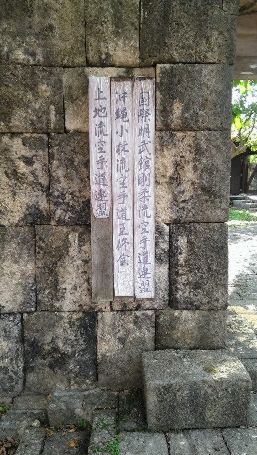 国際明武舘剛柔流空手道連盟
沖縄小林流空手道
上地流空手道連盟